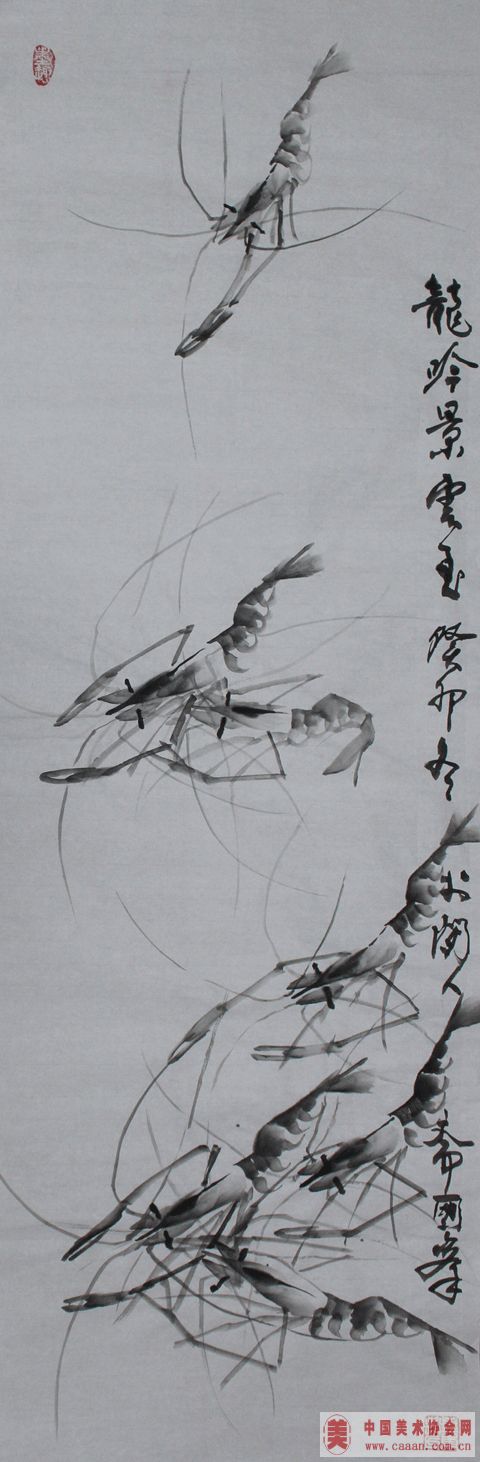 龍吟景雲至 癸卯冬 人 國峯
美 中国美术协会网
www.caaan.com.cn